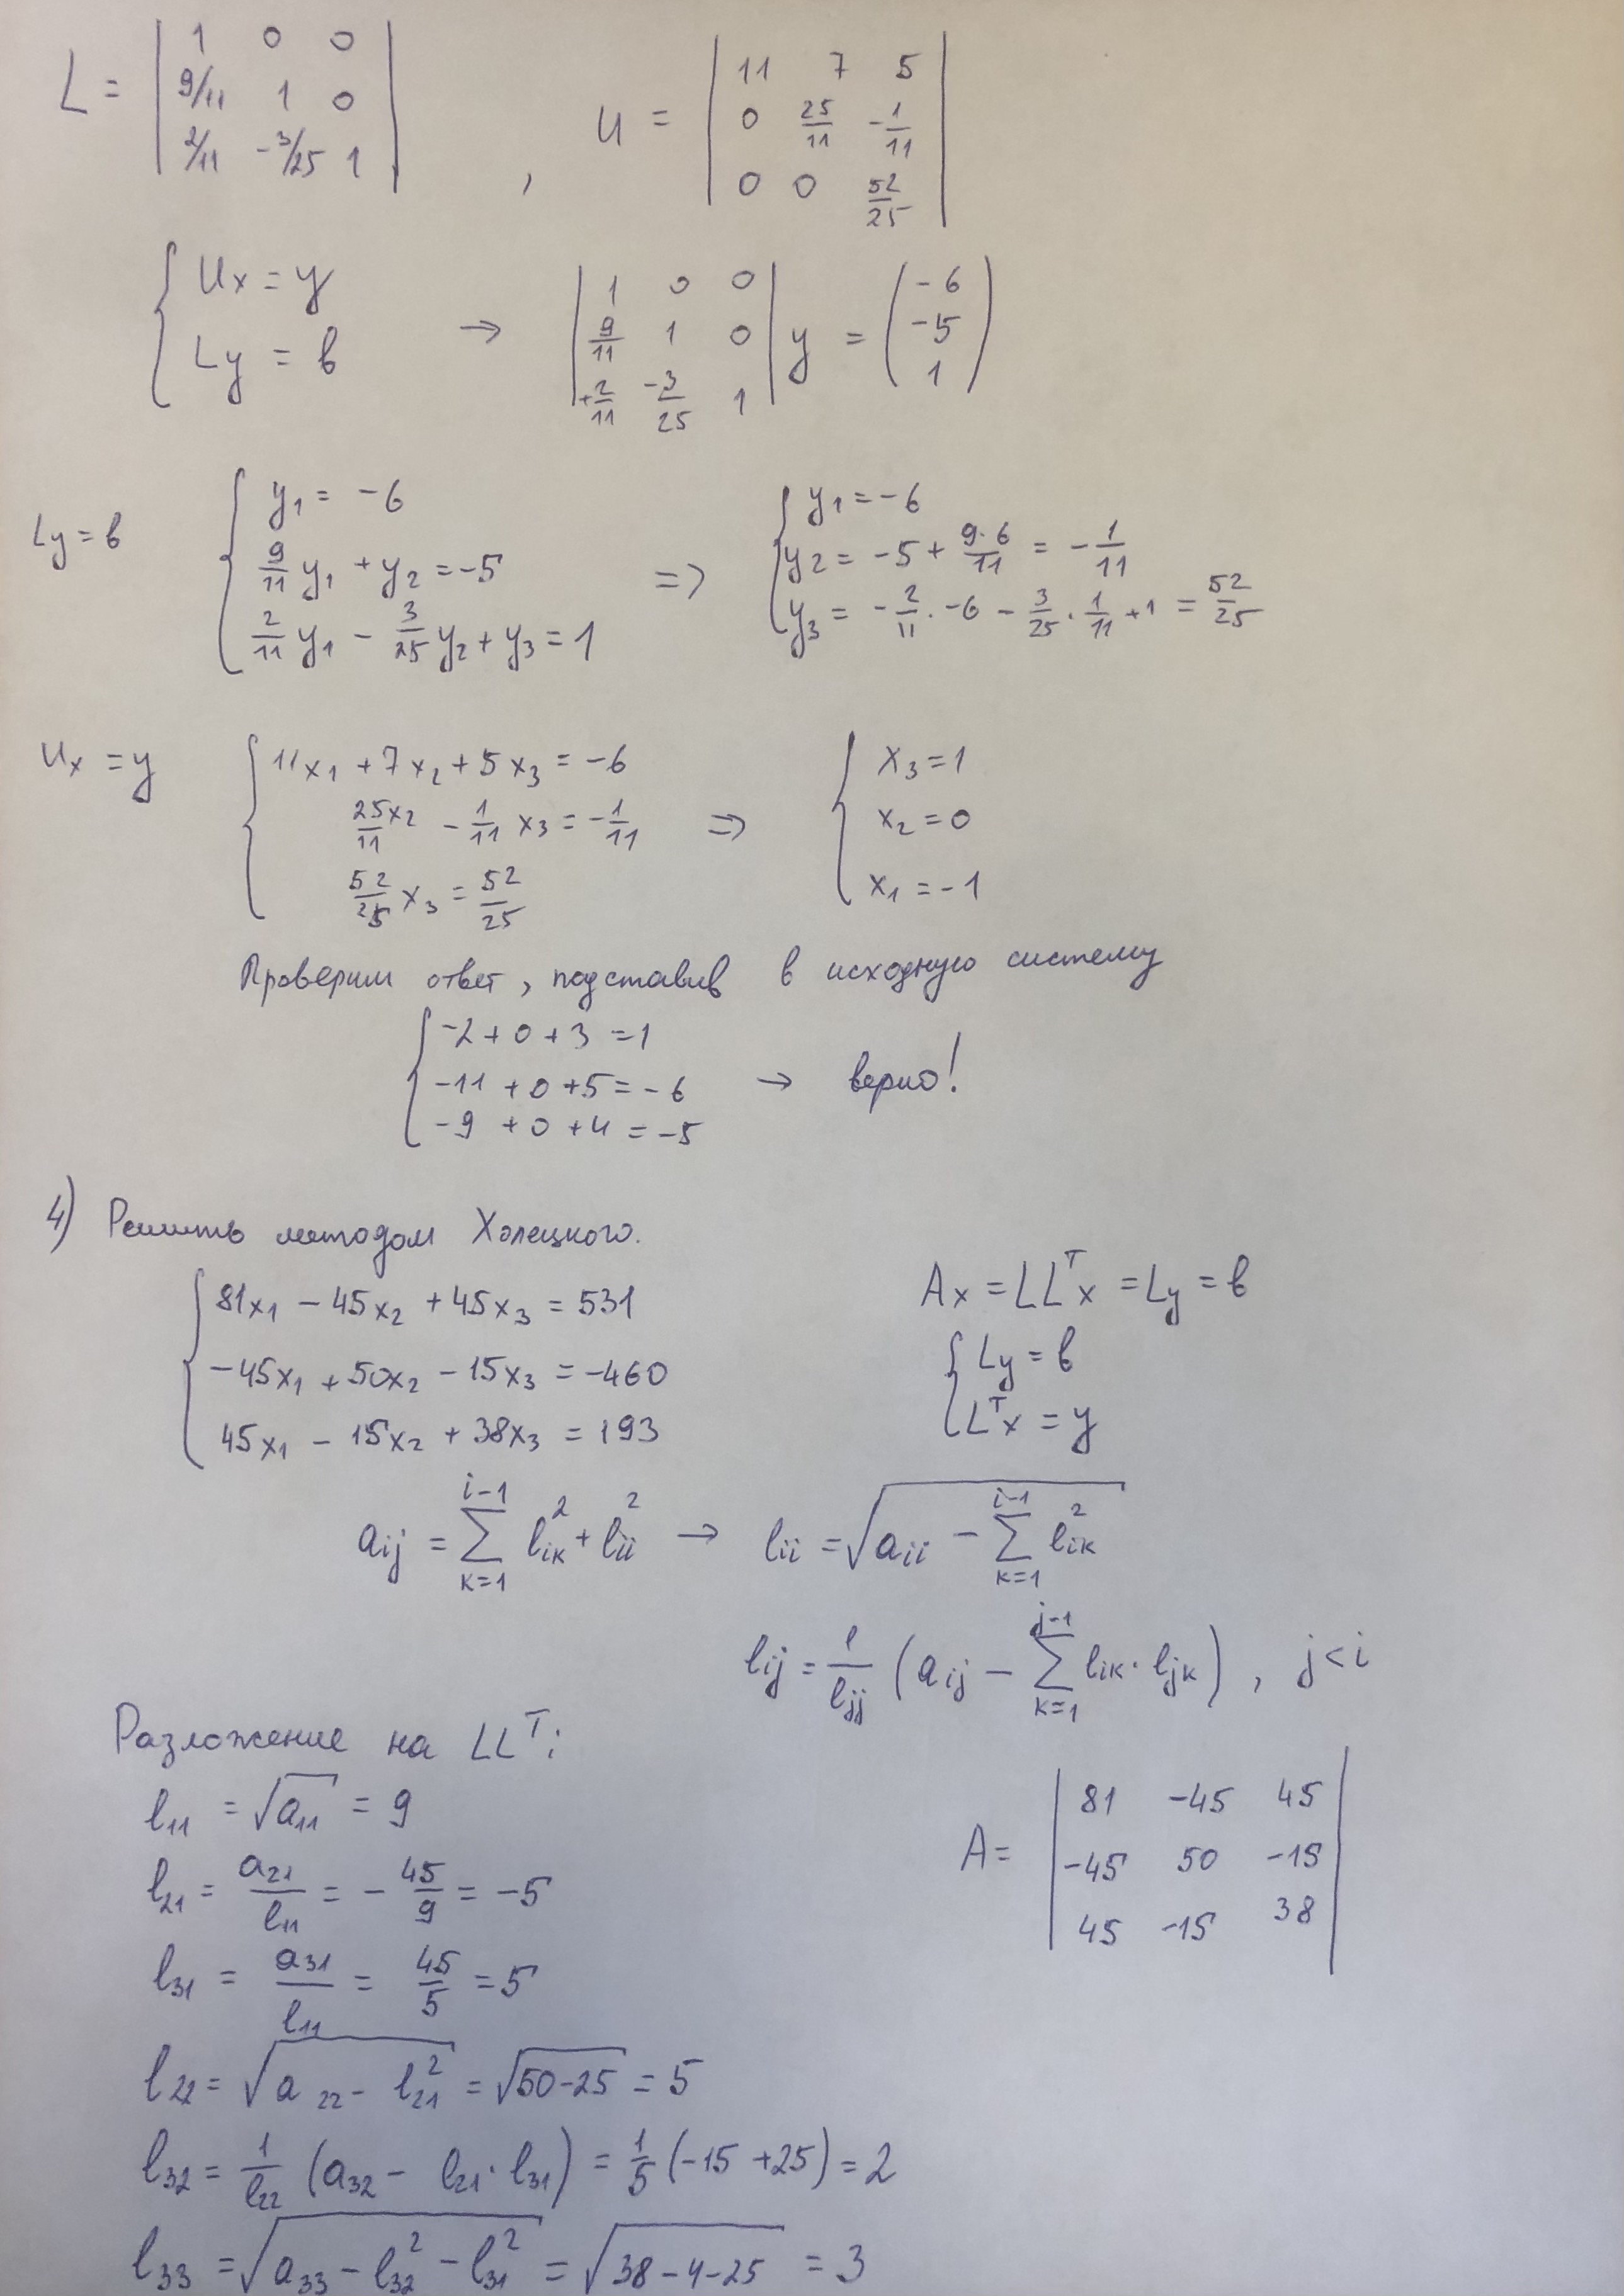 L = | 1 0 0 | 9/11 1 0 | 2/11 -3/25 1 | , U = | 11 7 5 | 0 25/11 -1/11 | 0 0 52/25 |
{ Ux = y
Ly = b → | 1 0 0 | 9/11 1 0 | +2/11 -3/25 1 | y = ( -6 -5 1 )
Ly = b { y₁ = -6
9/11 y₁ + y₂ = -5
2/11 y₁ - 3/25 y₂ + y₃ = 1
=> { y₁ = -6
y₂ = -5 + 9·6/11 = -1/11
y₃ = -2/11 · -6 - 3/25 · 1/11 + 1 = 52/25
Ux = y { 11x₁ + 7x₂ + 5x₃ = -6
25/11 x₂ - 1/11 x₃ = -1/11
52/25 x₃ = 52/25
=> { x₃ = 1
x₂ = 0
x₁ = -1
Проверим ответ, подставив в исходную систему
{ -2 + 0 + 3 = 1
-11 + 0 + 5 = -6 → верно!
-9 + 0 + 4 = -5
4) Решить методом Холецкого.
{ 81x₁ - 45x₂ + 45x₃ = 531
-45x₁ + 50x₂ - 15x₃ = -460
45x₁ - 15x₂ + 38x₃ = 193
Ax = LLᵀx = Ly = b
{ Ly = b
Lᵀx = y
aij = Σ(k=1, i-1) lik² + lii² → lii = √(aii - Σ(k=1, i-1) lik²)
lij = 1/ljj (aij - Σ(k=1, j-1) lik · ljk) , j < i
Разложение на LLᵀ:
l₁₁ = √a₁₁ = 9
l₂₁ = a₂₁/l₁₁ = - 45/9 = -5
l₃₁ = a₃₁/l₁₁ = 45/5 = 5
A = | 81 -45 45 | -45 50 -15 | 45 -15 38 |
l₂₂ = √(a₂₂ - l₂₁²) = √(50-25) = 5
l₃₂ = 1/l₂₂ (a₃₂ - l₂₁ · l₃₁) = 1/5 (-15 + 25) = 2
l₃₃ = √(a₃₃ - l₃₂² - l₃₁²) = √(38-4-25) = 3